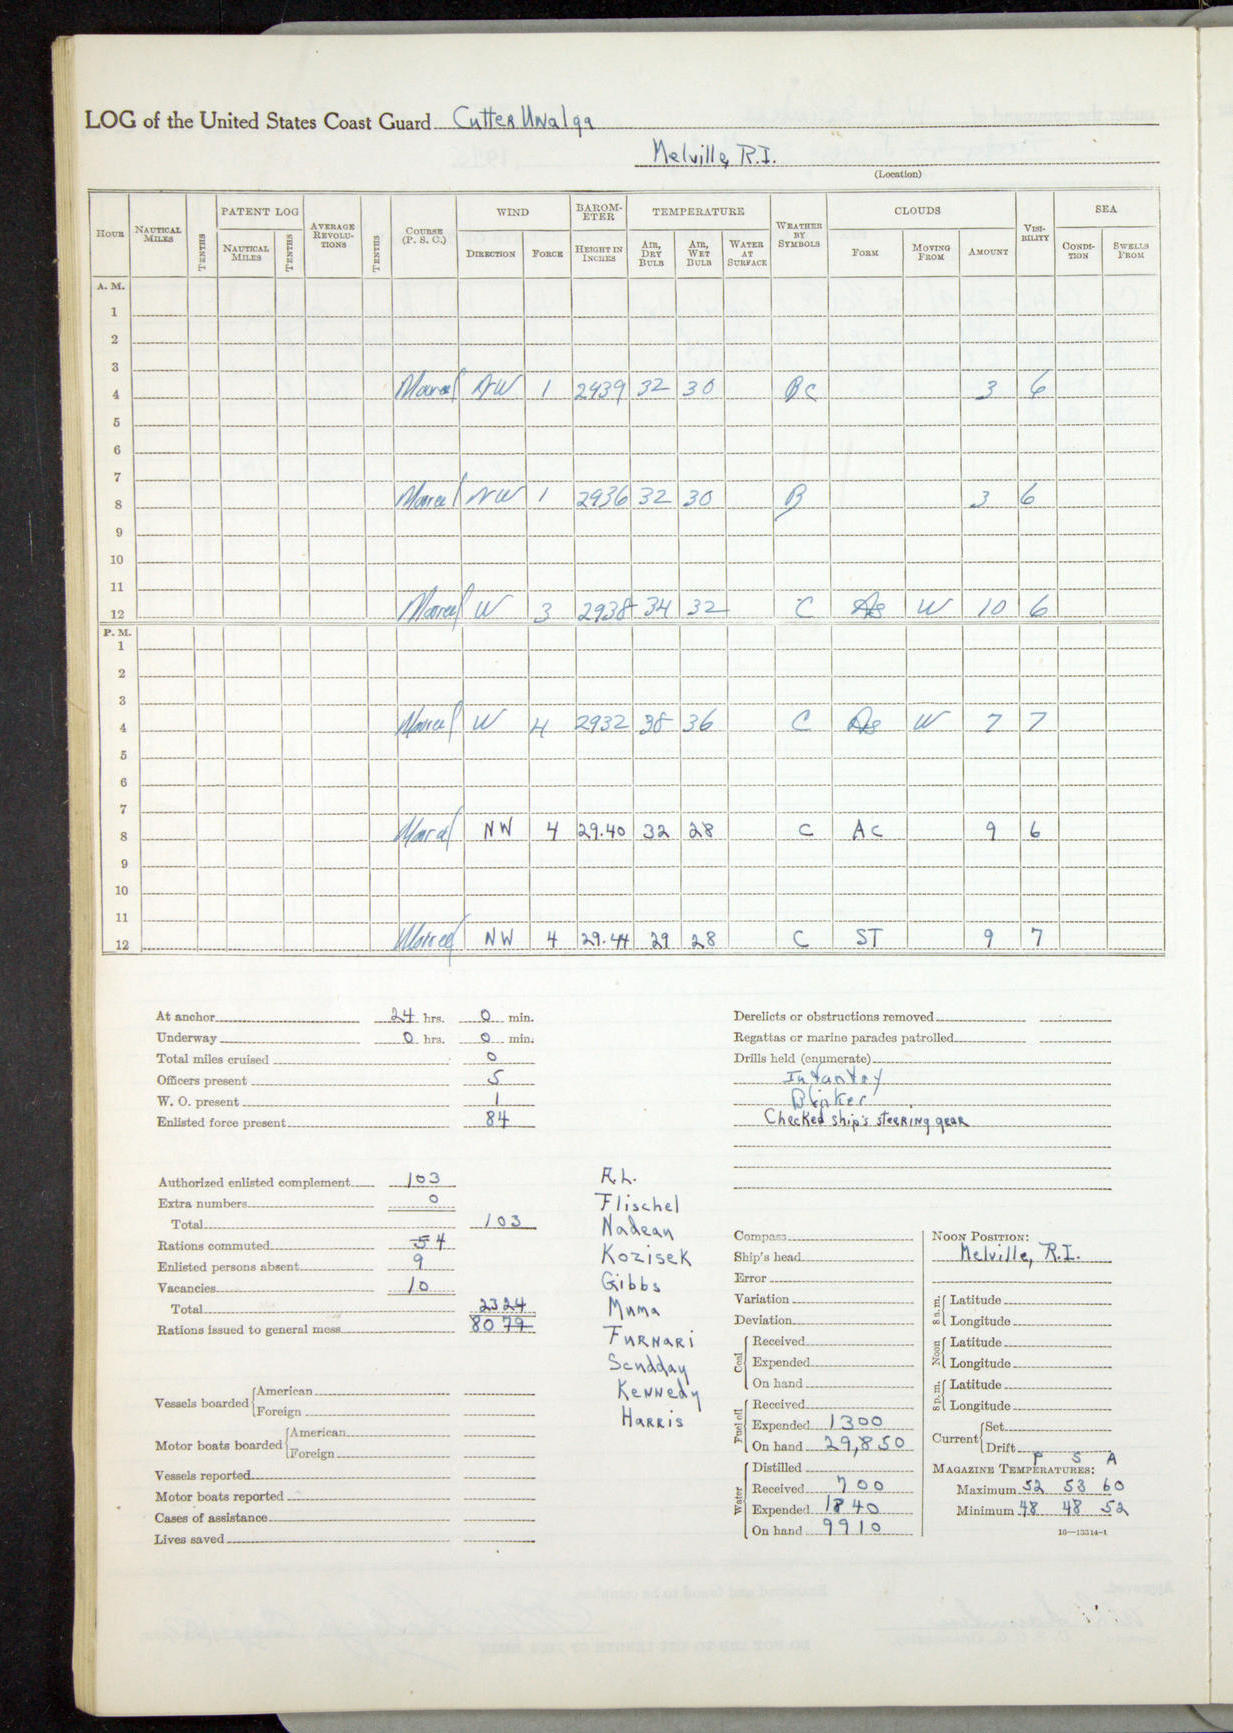 LOG of the United States Coast Guard Cutter Unalga
Melville, R.I.
(Location)
HOUR NAUTICAL MILES TENTHS PATENT LOG NAUTICAL MILES TENTHS AVERAGE REVOLU-TIONS TENTHS COURSE (P. S. C.) WIND DIRECTION FORCE BAROM-ETER HEIGHT IN INCHES TEMPERATURE AIR, DRY BULB AIR, WET BULB WATER AT SURFACE WEATHER BY SYMBOLS CLOUDS FORM MOVING FROM AMOUNT VISI-BILITY SEA CONDI-TION SWELLS FROM
A. M.
1
2
3
4 Moored NW 1 2939 32 30 BC 3 6
5
6
7
8 Moored NW 1 2936 32 30 B 3 6
9
10
11
12 Moored W 3 2938 34 32 C As W 10 6
P. M.
1
2
3
4 Moored W 4 2932 38 36 C As W 7 7
5
6
7
8 Moored NW 4 29.40 32 28 C AC 9 6
9
10
11
12 Moored NW 4 29.44 29 28 C ST 9 7
At anchor 24 hrs. 0 min.
Underway 0 hrs. 0 min.
Total miles cruised 0
Officers present 5
W. O. present 1
Enlisted force present 84
Authorized enlisted complement 103
Extra numbers 0
Total 103
Rations commuted 54
Enlisted persons absent 9
Vacancies 10
Total 23 24
Rations issued to general mess 80 79
Vessels boarded American
Foreign
Motor boats boarded American
Foreign
Vessels reported
Motor boats reported
Cases of assistance
Lives saved
R.L.
Flischel
Nadean
Kozisek
Gibbs
Muma
Furnari
Scudday
Kennedy
Harris
Derelicts or obstructions removed
Regattas or marine parades patrolled
Drills held (enumerate)
Infantry
Blinker
Checked ship's steering gear
Compass
Ship's head
Error
Variation
Deviation
Coal Received
Expended
On hand
Fuel oil Received
Expended 1300
On hand 29,850
Water Distilled
Received 700
Expended 1840
On hand 9910
NOON POSITION:
Melville, R.I.
8 a. m. Latitude
Longitude
Noon Latitude
Longitude
8 p. m. Latitude
Longitude
Current Set
Drift
P S A
MAGAZINE TEMPERATURES:
Maximum 52 53 60
Minimum 48 48 52
16—13314-1